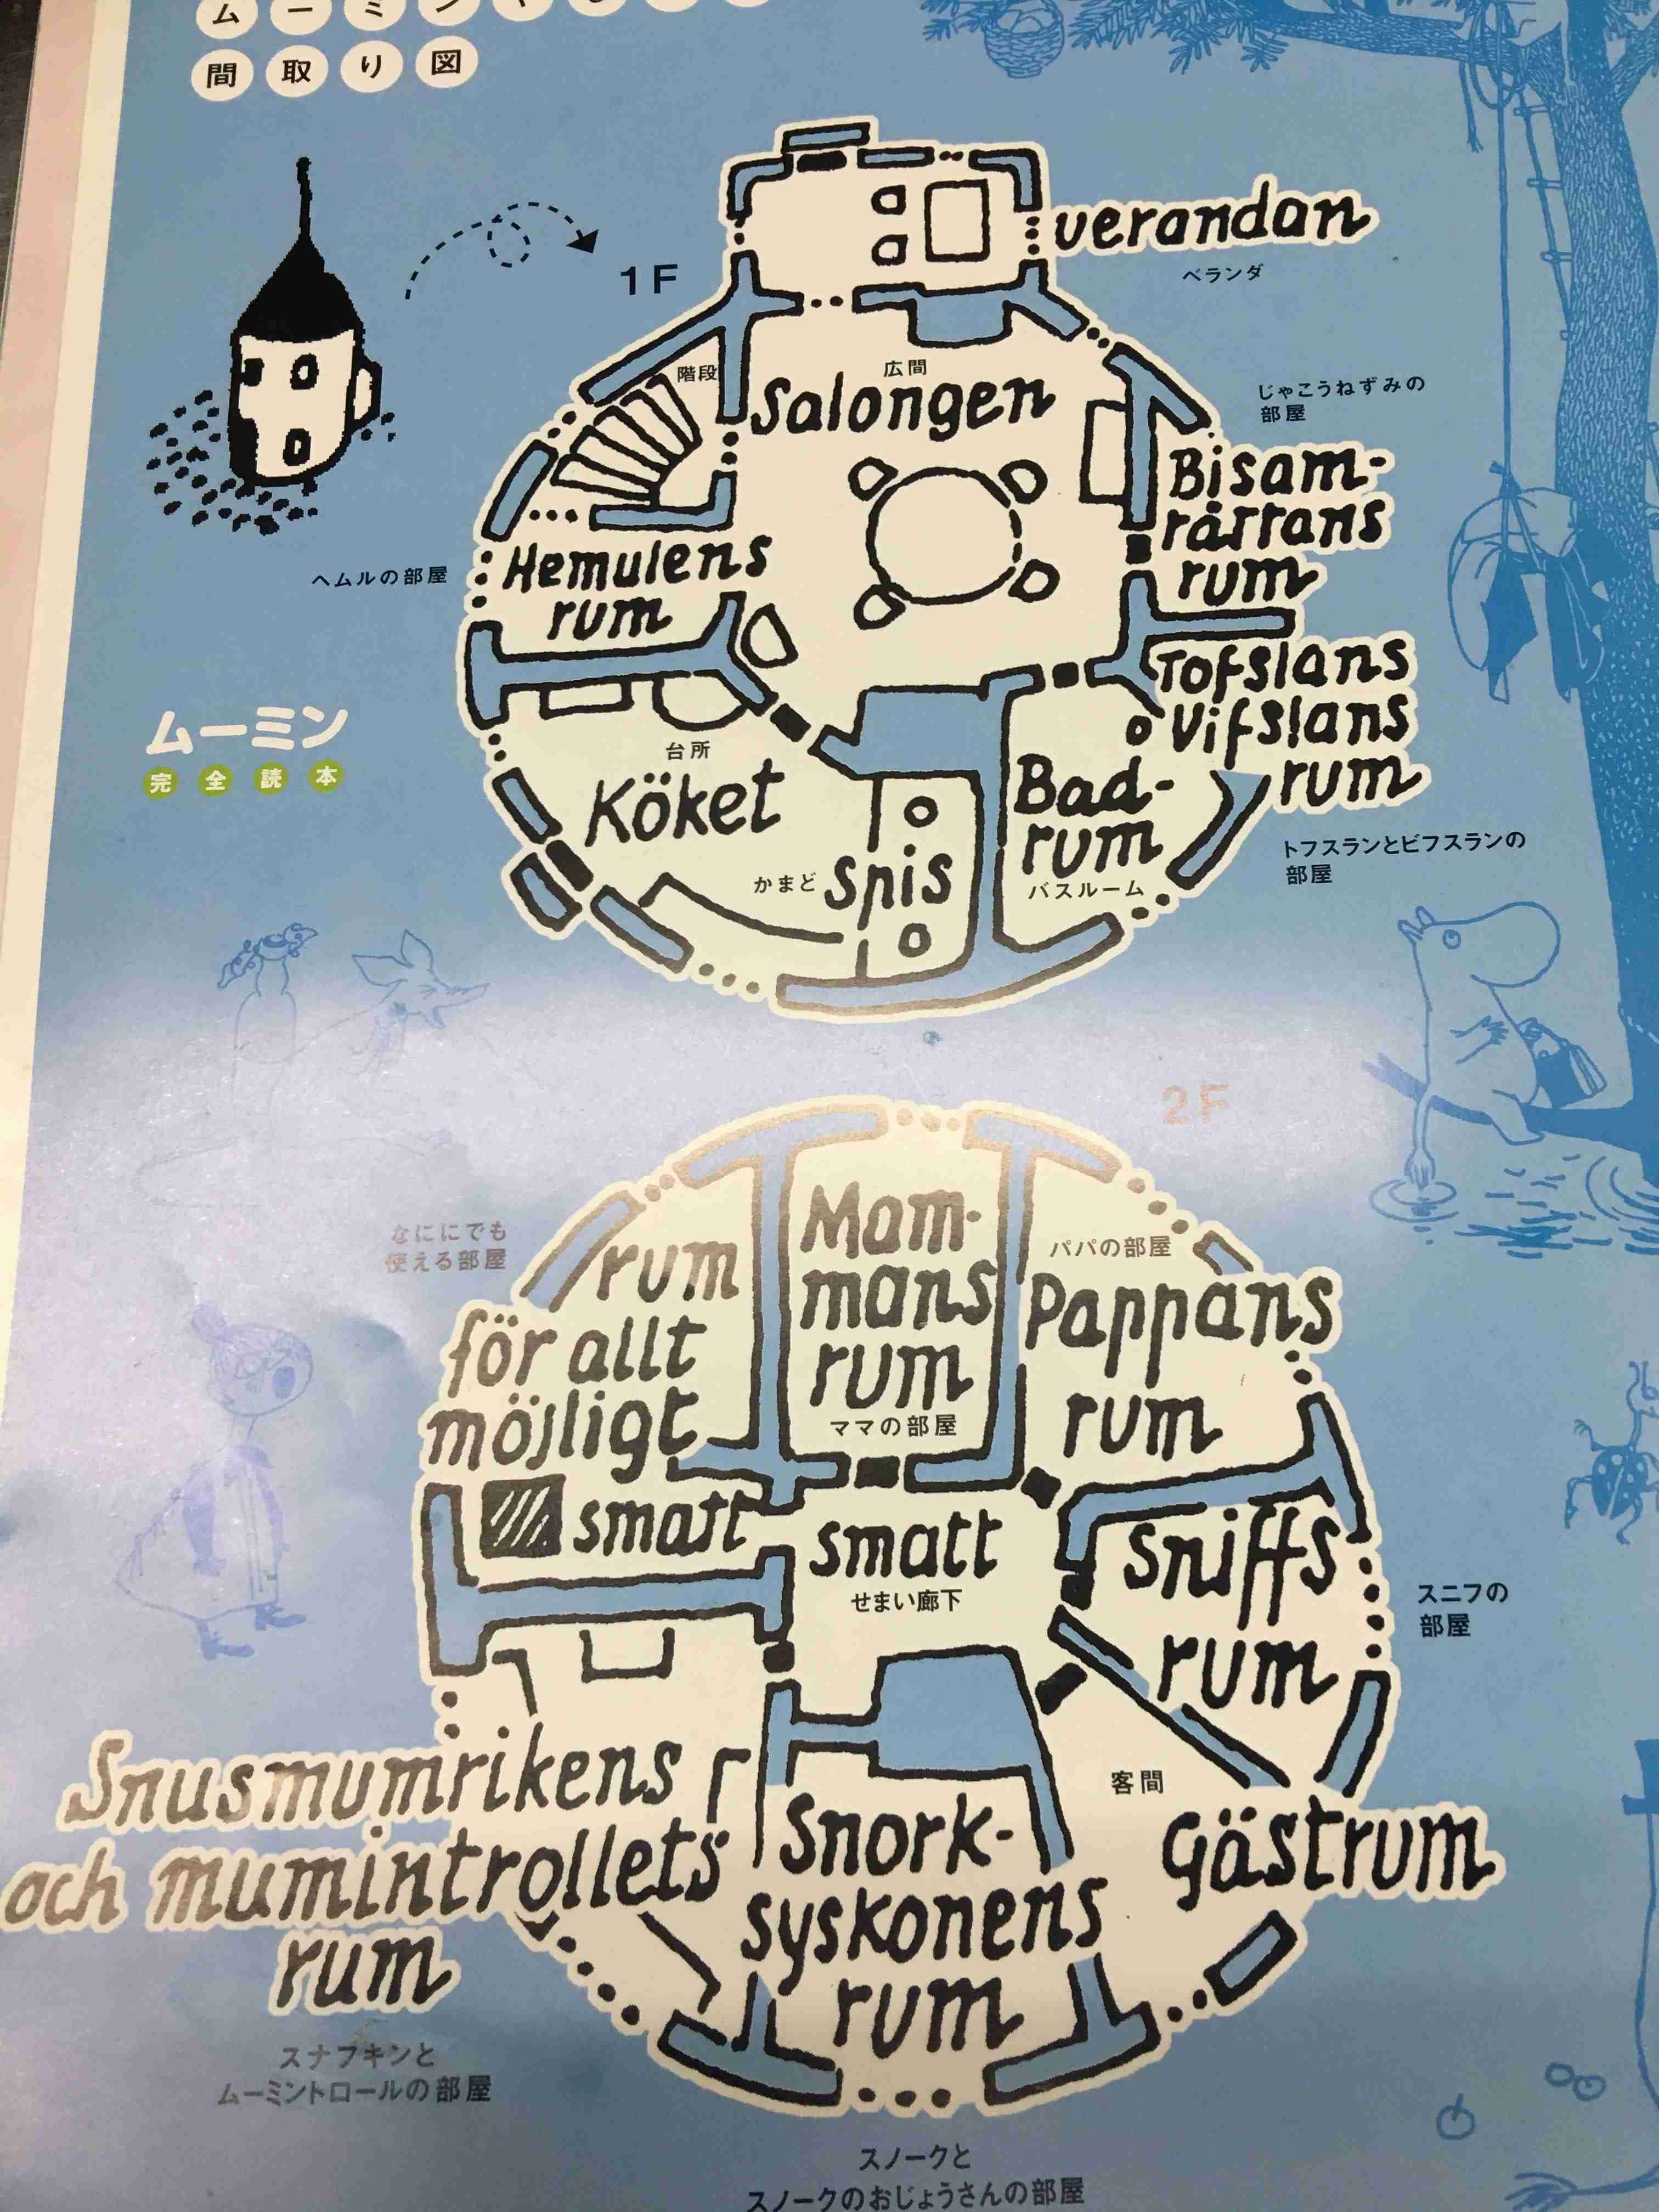 間取り図
1F
verandan
ベランダ
階段
広間
Salongen
じゃこうねずみの
部屋
Bisam-
råttans
rum
ヘムルの部屋
Hemulens
rum
Tofslans
Vifslans
rum
トフスランとビフスランの
部屋
ムーミン
完全読本
台所
Köket
かまど
Spis
Bad-
rum
バスルーム
2F
なににでも
使える部屋
rum
för allt
möjligt
Mam-
mans
rum
ママの部屋
パパの部屋
Pappans
rum
smatt
smatt
せまい廊下
Sniffs
rum
スニフの
部屋
Snusmumrikens
och mumintrollets
rum
スナフキンと
ムーミントロールの部屋
Snork-
syskonens
rum
客間
Gästrum
スノークと
スノークのおじょうさんの部屋